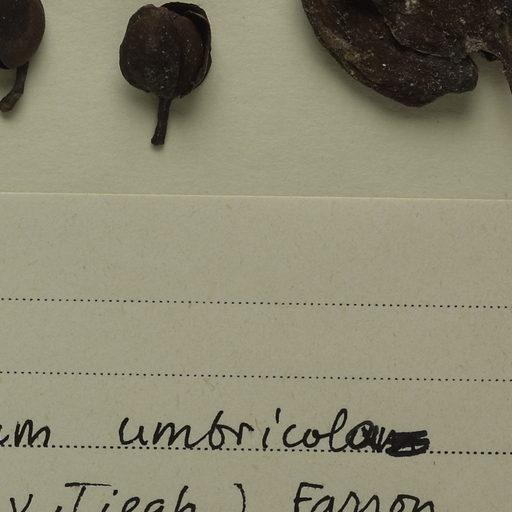 um umbricola
v. Tiegh.) Farron